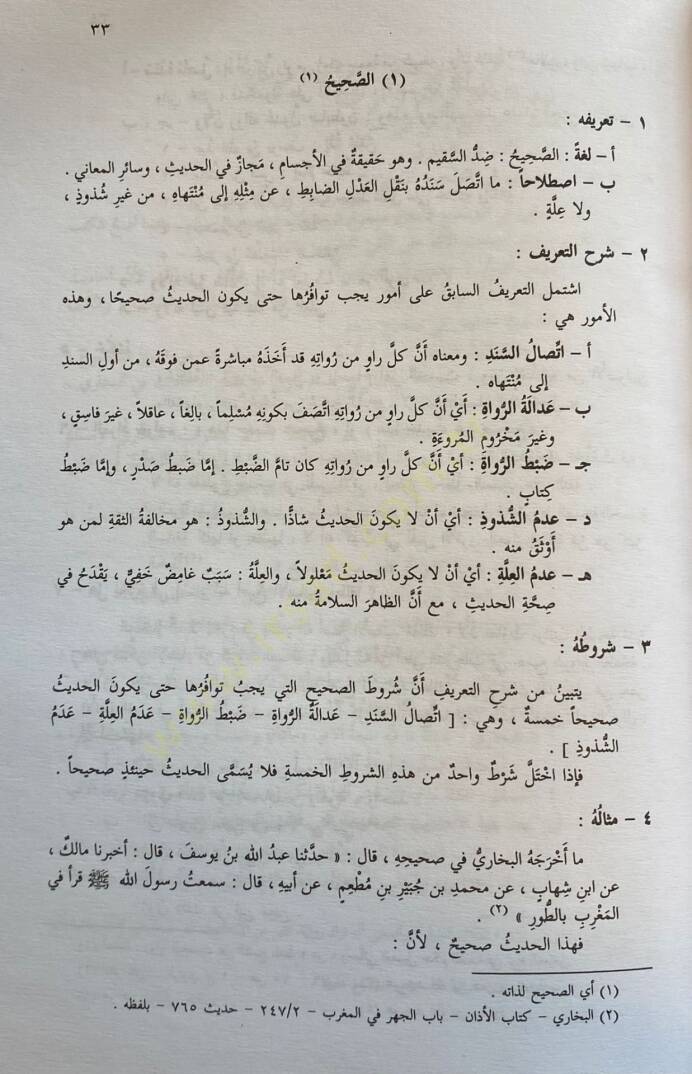 ٣٣
(١) الصَّحِيحُ (١)
١ - تعريفه :
أ - لغةً : الصَّحِيحُ : ضِدُّ السَّقيم . وهو حَقيقةٌ في الأجسامِ ، مَجازٌ في الحديثِ ، وسائرِ المعاني .
ب - اصطلاحاً : ما اتَّصَلَ سَنَدُهُ بنَقْلِ العَدْلِ الضابِطِ ، عن مِثْلِهِ إلى مُنْتَهاهِ ، من غيرِ شُذوذٍ ،
ولا عِلَّةٍ .
٢ - شرح التعريف :
اشتمل التعريفُ السابقُ على أمور يجب توافُرُها حتى يكون الحديثُ صحيحًا ، وهذه
الأمور هي :
أ - اتِّصالُ السَّنَدِ : ومعناه أَنَّ كلَّ راوٍ من رُواتِهِ قد أَخَذَهُ مباشرةً عمن فوقَهُ ، من أولِ السندِ
إلى مُنْتَهاه .
ب - عَدالَةُ الرُّواةِ : أيْ أَنَّ كلَّ راوٍ من رُواتِهِ اتَّصَفَ بكونِهِ مُسْلِماً ، بالِغاً ، عاقلاً ، غيرَ فاسِقٍ ،
وغيرَ مَخْرُومِ المُروءَةِ .
جـ - ضَبْطُ الرُّواةِ : أيْ أَنَّ كلَّ راوٍ من رُواتِهِ كان تامَّ الضَّبْطِ . إمَّا ضَبطُ صَدْرٍ ، وإمَّا ضَبْطُ
كِتابٍ .
د - عدمُ الشُّذوذِ : أيْ أنْ لا يكونَ الحديثُ شاذًّا . والشُّذوذُ : هو مخالفةُ الثقةِ لمن هو
أَوْثَقُ منه .
هـ - عدمُ العِلَّةِ : أيْ أنْ لا يكونَ الحديثُ مَعْلولاً ، والعِلَّةُ : سَبَبٌ غامِضٌ خَفِيٌّ ، يَقْدَحُ في
صِحَّةِ الحديثِ ، مع أَنَّ الظاهرَ السلامةُ منه .
٣ - شروطُهُ :
يتبينُ من شرحِ التعريفِ أَنَّ شُروطَ الصحيحِ التي يجبُ توافُرُها حتى يكونَ الحديثُ
صحيحاً خمسةٌ ، وهي : [ اتِّصالُ السَّنَدِ - عَدالَةُ الرُّواةِ - ضَبْطُ الرُّواةِ - عَدَمُ العِلَّةِ - عَدَمُ
الشُّذوذِ ] .
فإذا اخْتَلَّ شَرْطٌ واحدٌ من هذِهِ الشروطِ الخمسةِ فلا يُسَمَّى الحديثُ حينئذٍ صحيحاً .
٤ - مثالُهُ :
ما أَخْرَجَهُ البخاريُّ في صحيحِهِ ، قال : « حدَّثنا عبدُ الله بنُ يوسفَ ، قال : أخبرنا مالكٌ ،
عن ابنِ شِهابٍ ، عن محمدِ بن جُبَيْرِ بنِ مُطْعِمٍ ، عن أبيهِ ، قال : سمعتُ رسولَ الله ﷺ قرأ في
المَغْرِبِ بالطُّورِ » (٢) .
فهذا الحديثُ صحيحٌ ، لأنَّ :
(١) أي الصحيح لذاته .
(٢) البخاري - كتاب الأذان - باب الجهر في المغرب - ٢٤٧/٢ - حديث ٧٦٥ - بلفظه .